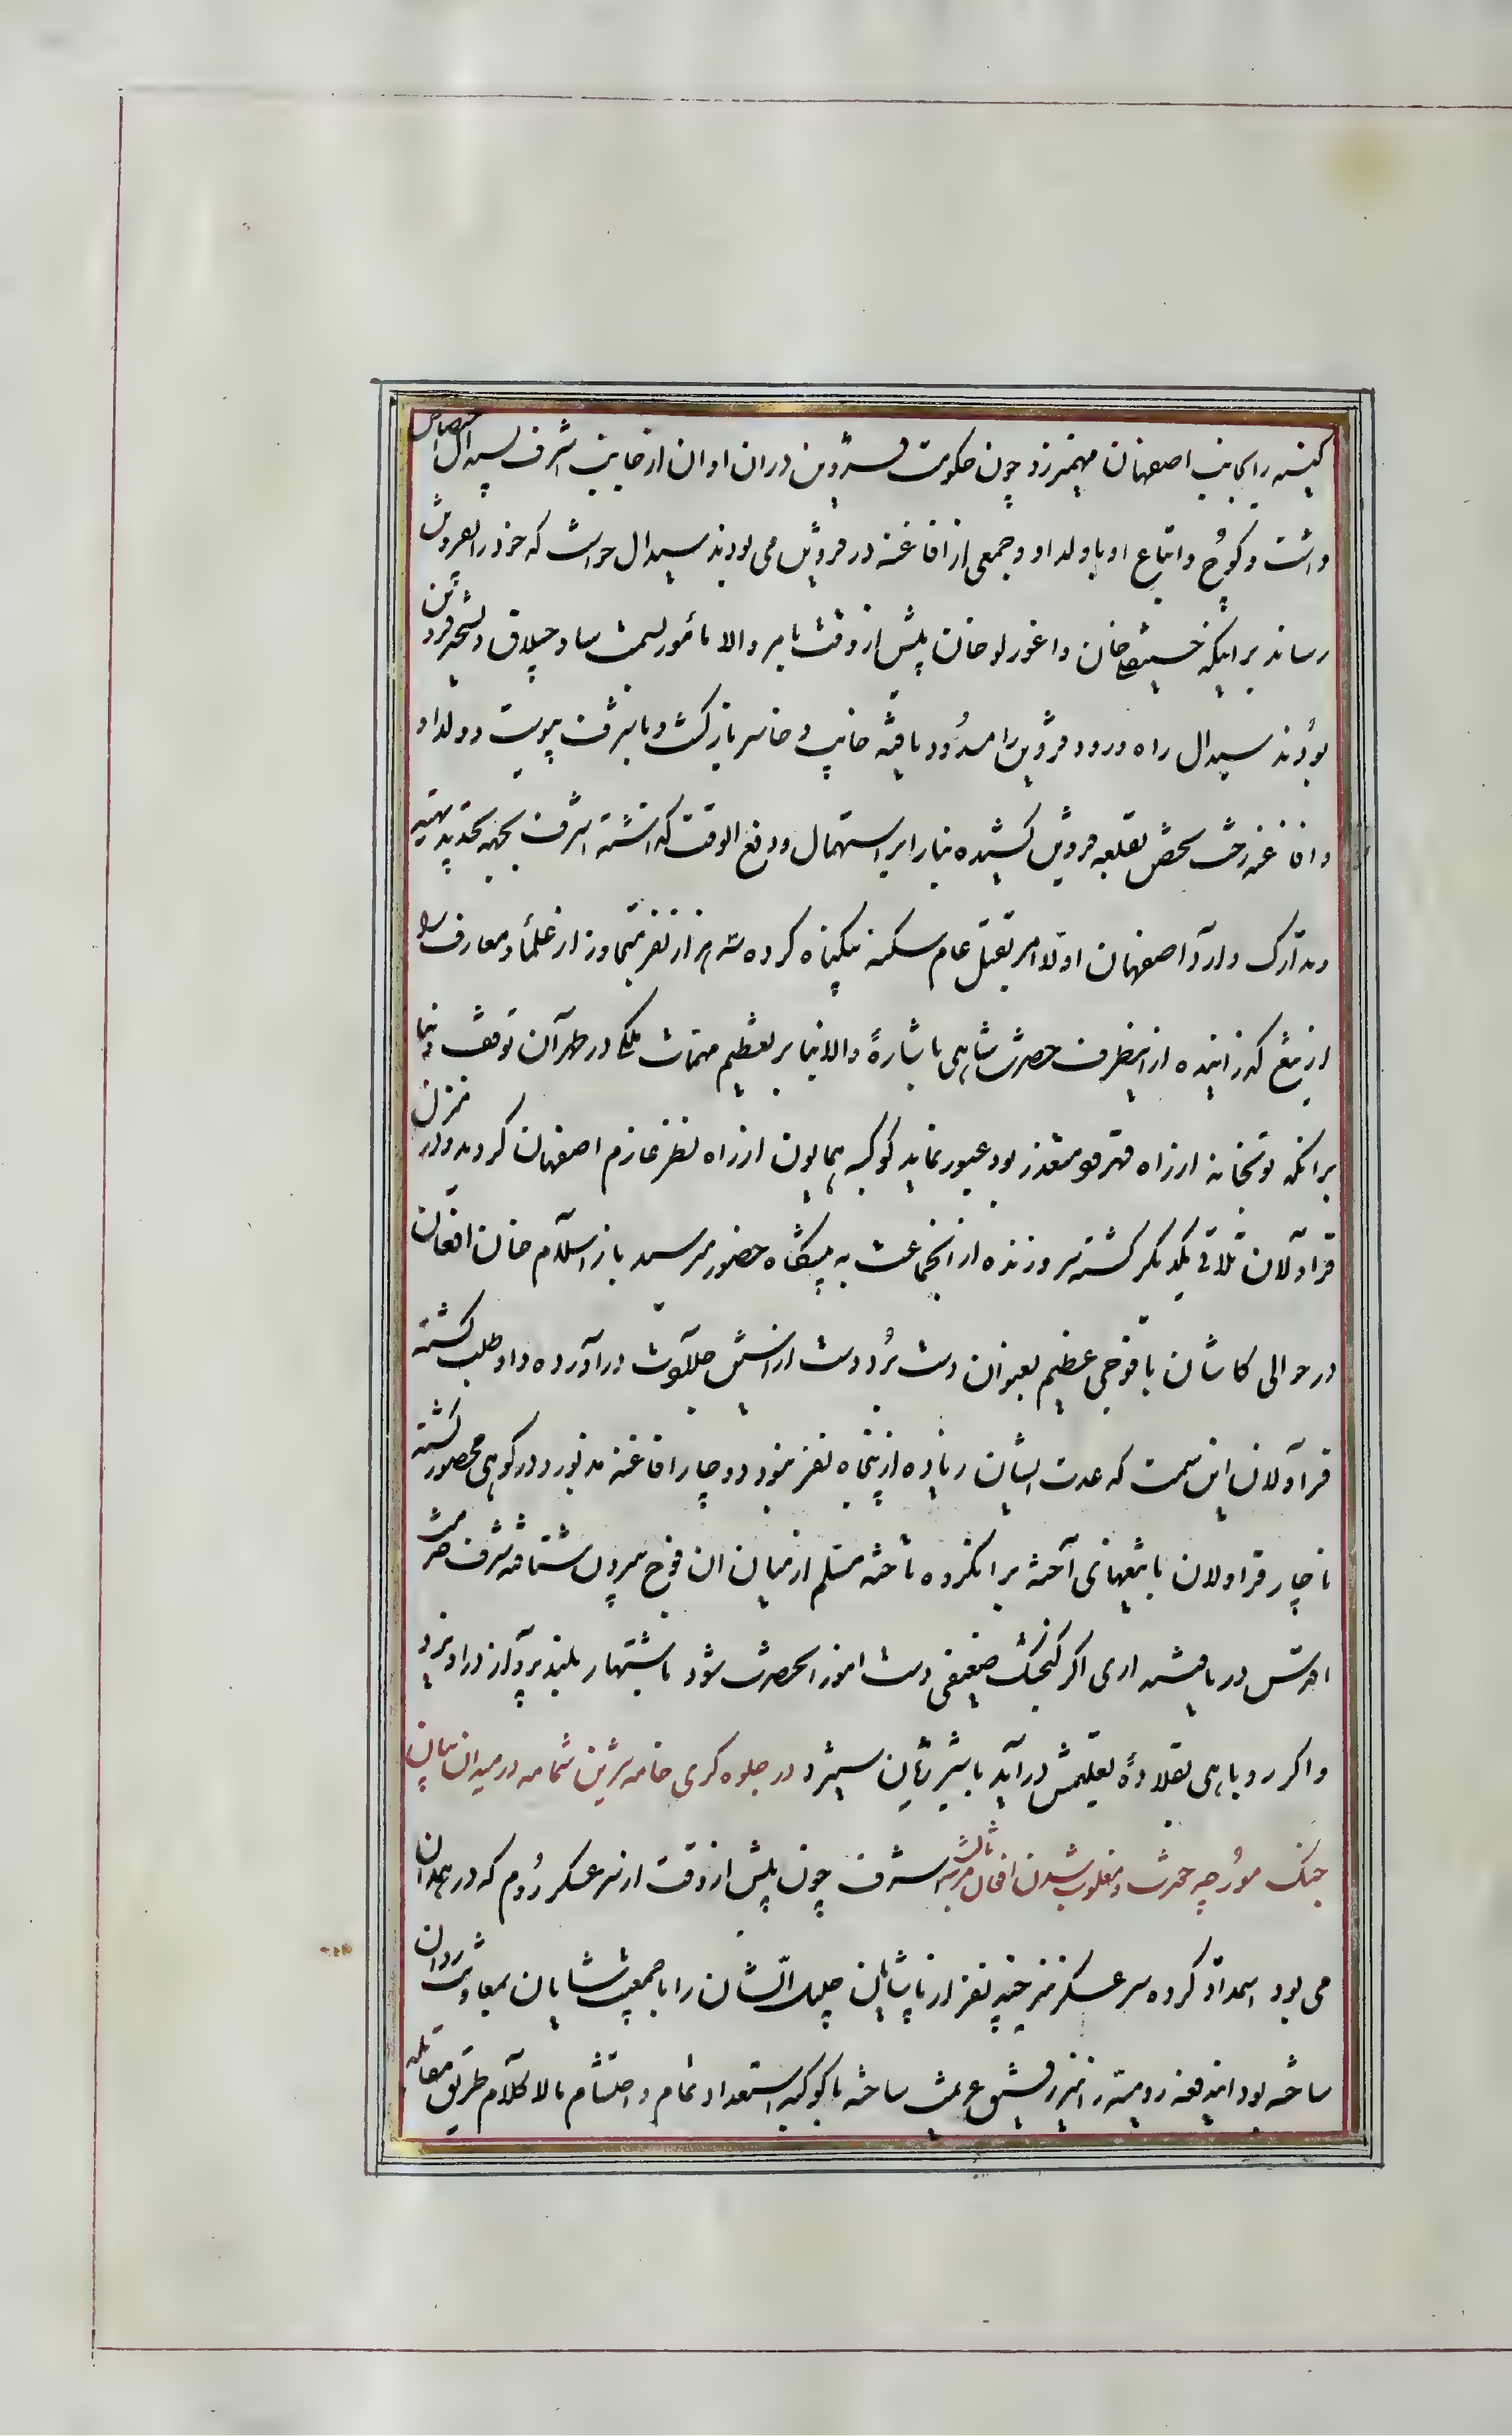 کینه را بجانب اصفهان مهمیز زد چون حکومت قزوین دران اوان از جانب اشرف بسیدال اختصاص
داشت و کوچ و اتباع او با ولد او و جمعی از افاغنه در قزوین می بودند سیدال خواست که خود را بقزوین
رساند برانیکه خان و اغورلو خان پیش از وقت بامر والا مأمور بسمت ساوجبلاق و تسخیر قزوین
بودند سیدال راه ورود قزوین را مسدود یافته خایب و خاسر بازگشت و باشرف پیوست و ولد او
و افاغنه رخت تحصن بقلعه قزوین کشیده بنا را بر استمهال و دفع الوقت گذاشته اشرف بجهه تجدید تهیه
و تدارک وارد اصفهان اولا امر بقتل عام سکنه بیگناه کرده سه هزار نفر متجاوز از علما و معارف را
از تیغ گذرانیده از اینطرف حضرت شاهی باشارهٔ والا بنا بر تعظیم مهمات ملکی در طهران توقف و بنا
برانکه توپخانه از راه قهرود متعذر بود عبور نماید کوکبه همایون از راه نطنز عازم اصفهان گردید و در منزل
قراولان تلاقی یکدیگر گشته سر و زنده از انجماعت به پیشگاه حضور میرسید باز اسلام خان افغان
در حوالی کاشان با فوجی عظیم بعنوان دست برد دست از آستین جلادت درآورده داوطلب گشته
قراولان این سمت که عدت ایشان زیاده از پنجاه نفر نبود دوچار افاغنه مذبور و در کوهی محصور گشته
ناچار قراولان با تیغهای آخته بر انگروه تاخته مسلم از میان ان فوج بیرون شتافته شرف خدمت
اقدس دریافتند اری اگر گنجشک ضعیفی دست اموز انحضرت شود با شهباز بلند پرواز دراویزد
و اگر روباهی بقلادهٔ تعلیمش درآید با شیر ژیان ستیزد در جلوه گری خامه شرین شمامه در میدان بیان
جنگ مورچه خورت و مغلوب شدن افغان مرتبه ثالث اشرف چون پیش از وقت از سر عسکر روم که در همدان
می بود استمداد کرده سر عسکر نیز چند نفر از پاشایان جلیل الشان را با جمعیت شایان بمعاونت روان
ساخته بود ایندفعه رومیه را نیز رفیق عزیمت ساخته با کوکبه استعداد تمام و احتشام مالاکلام طریق مقابله